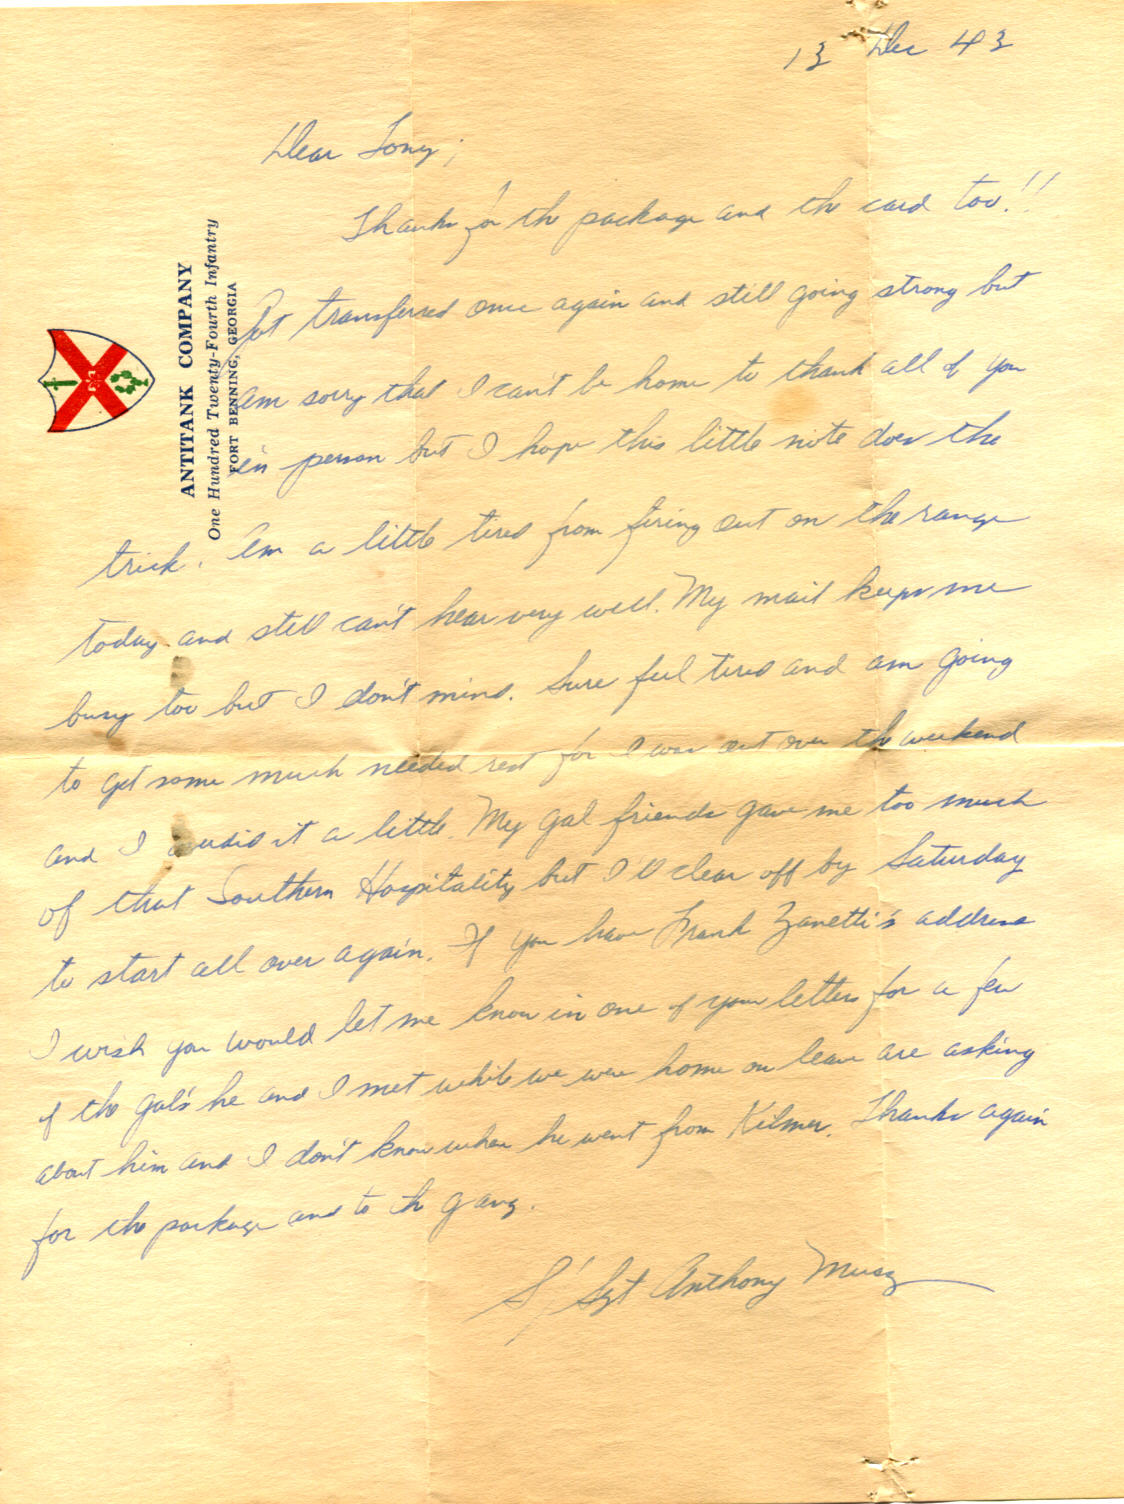 13 Dec 43
Dear Tony;
Thanks for the package and the card too!!
ANTITANK COMPANY
One Hundred Twenty-Fourth Infantry
FORT BENNING, GEORGIA
Got transferred once again and still going strong but
am sorry that I can't be home to thank all of you
in person but I hope this little note does the
trick. Am a little tired from firing out on the range
today and still can't hear very well. My mail keeps me
busy too but I don't mind. Sure feel tired and am going
to get some much needed rest for I was out over the weekend
and I it a little. My gal friends gave me too much
of that Southern Hospitality but I'll clear off by Saturday
to start all over again. If you have Frank Zanetti's address
I wish you would let me know in one of your letters for a few
of the gal's he and I met while we were home on leave are asking
about him and I don't know where he went from Kilmer. Thanks again
for the package and to the gang.
S/Sgt Anthony